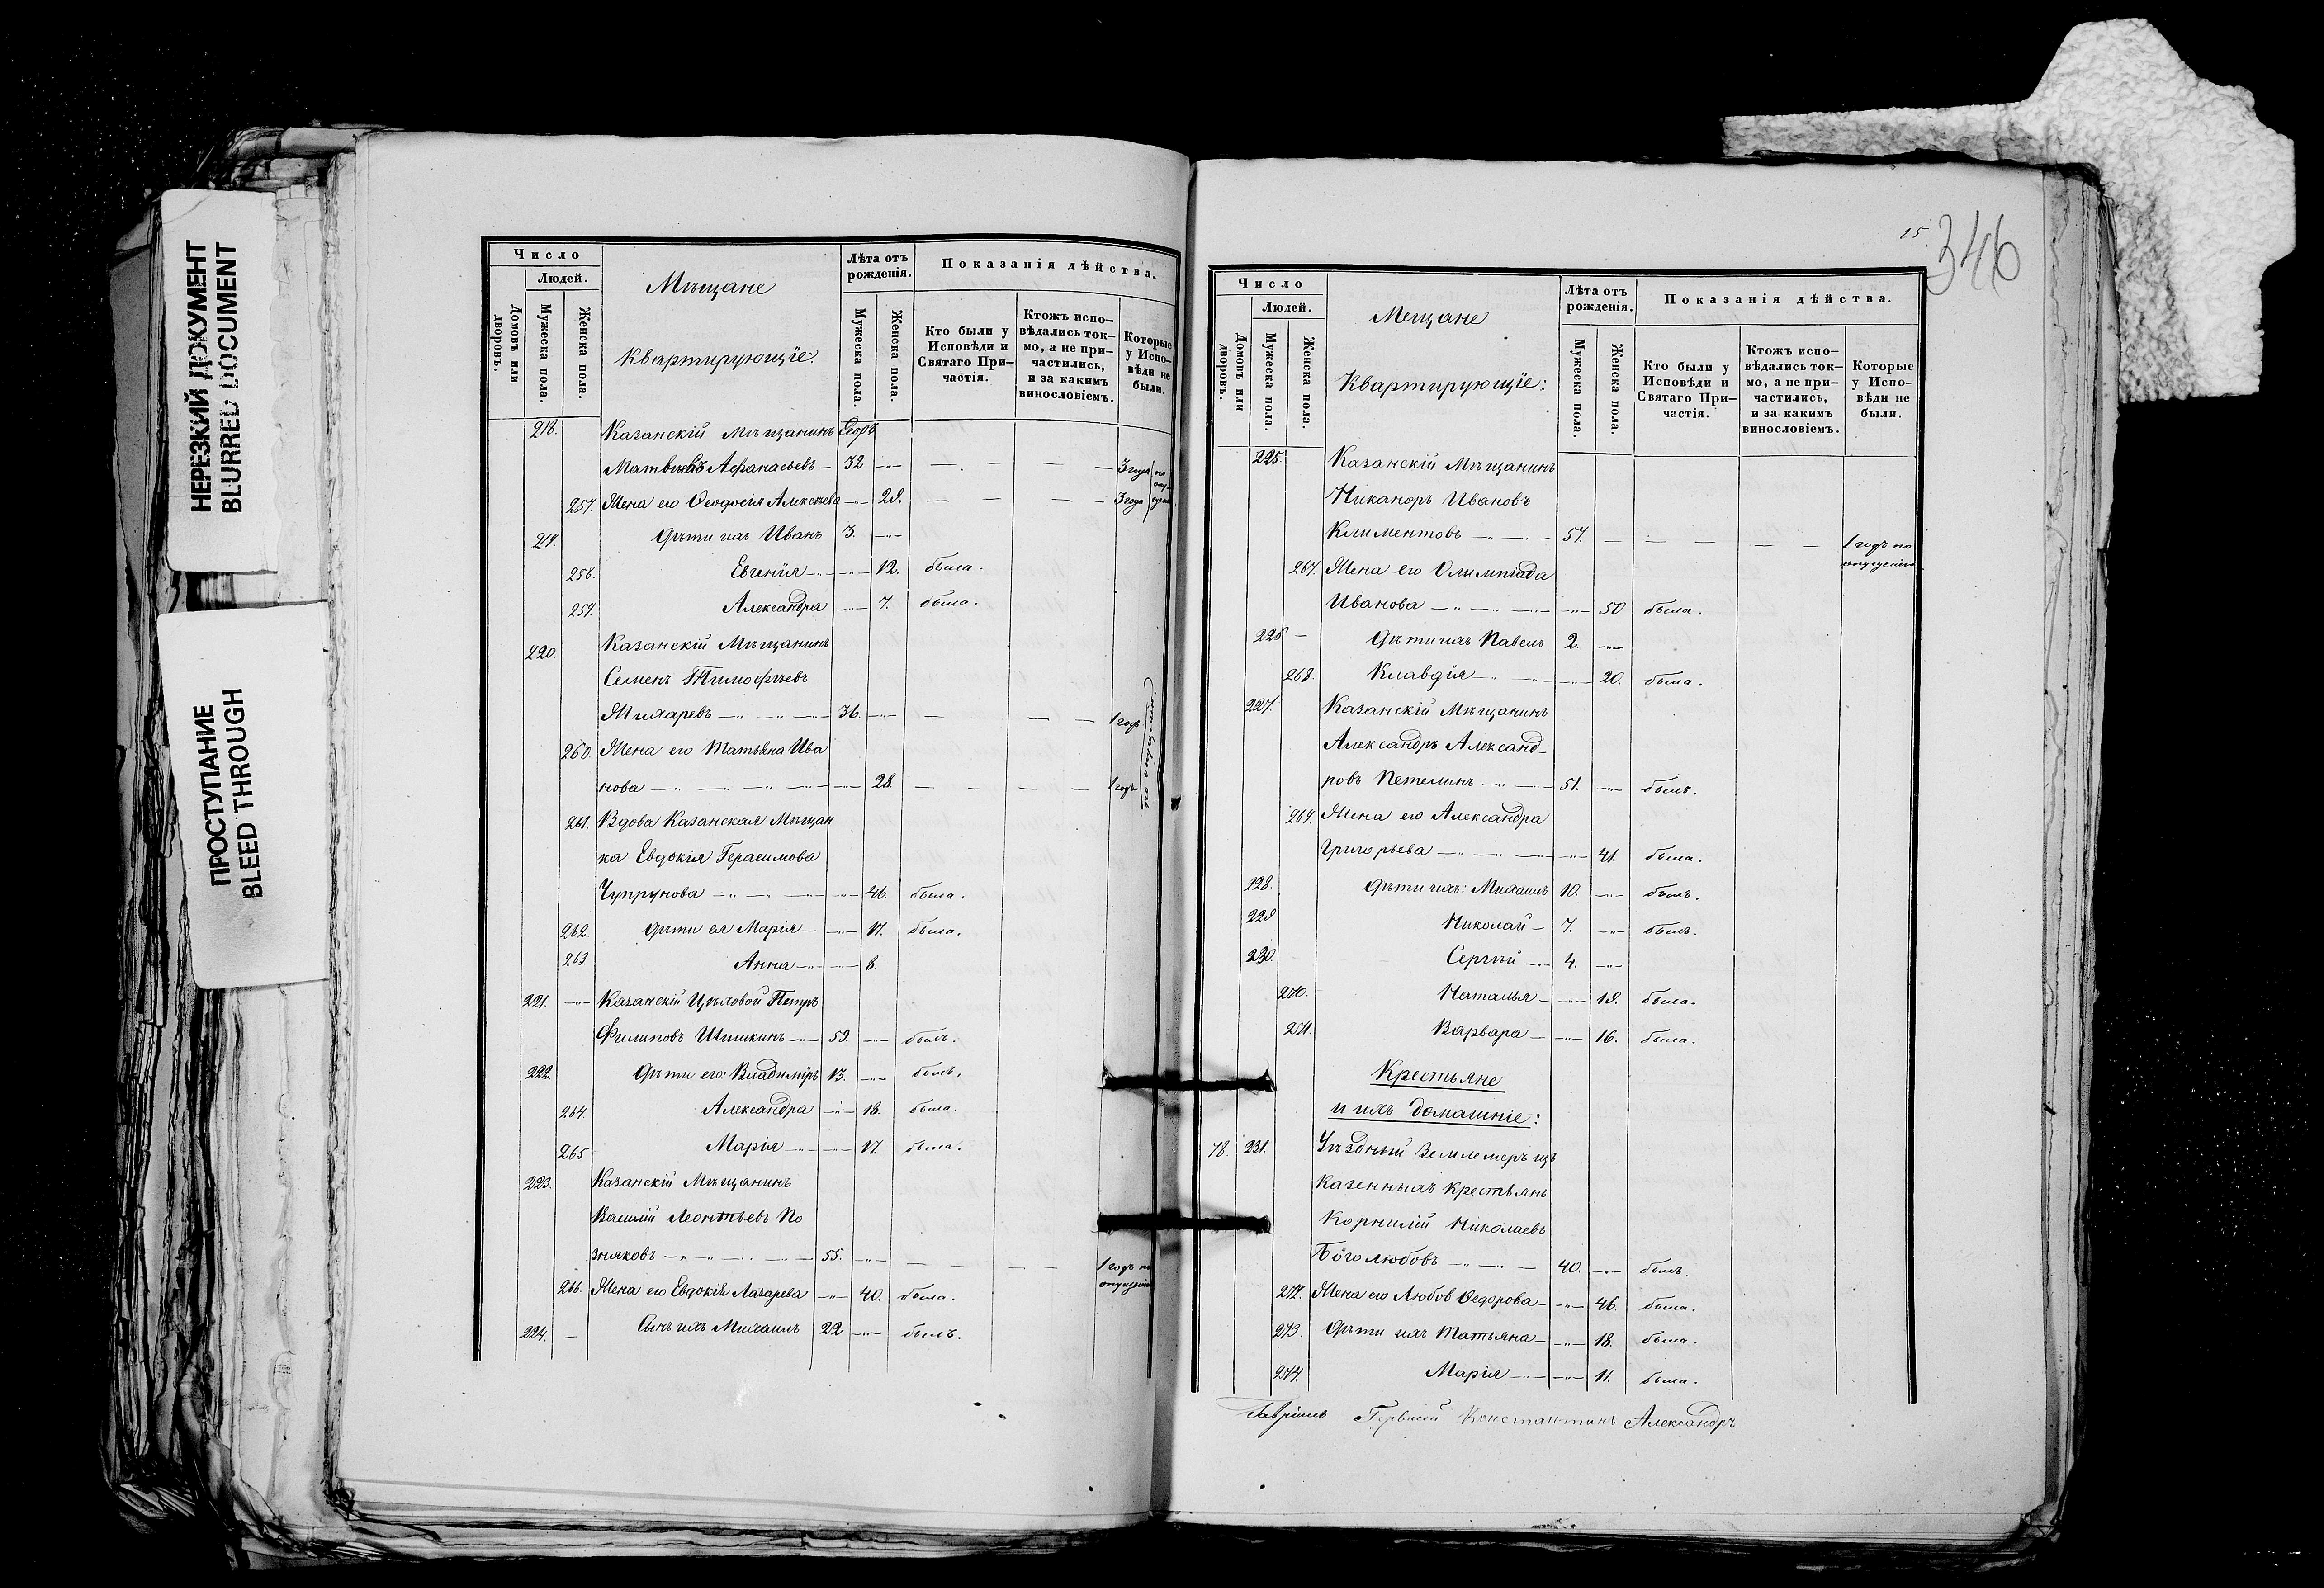 НЕРЕЗКИЙ ДОКУМЕНТ
BLURRED DOCUMENT
ПРОСТУПАНИЕ
BLEED THROUGH
Число
Людей.
Домовъ или дворовъ.
Мужеска пола.
Женска пола.
Мѣщане
квартирующіе.
Лѣта отъ рожденія.
Мужеска пола.
Женска пола.
Показанія дѣйства.
Кто были у Исповѣди и Святаго При-частія.
Ктожъ испо-вѣдались ток-мо, а не при-частились, и за какимъ винословіемъ.
Которые у Испо-вѣди не были.
218. Казанскій Мѣщанинъ Егоръ
Матвѣевъ Афанасьевъ — 32 —"— — — — — 3 года по опу-
257. Жена его Феодосія Алексѣева —"— 29. — — — 3 года щен.
219. Дѣти ихъ Иванъ 3. —"—
258. Евгенія —"— —"— 12. была.
259. Александра —"— 7. была.
220. Казанскій Мѣщанинъ
Семенъ Тимофѣевъ
Жихаревъ —"— —"— —"— 36. —"— — — — 1 годъ
260. Жена его Татьяна Ива
нова —"— —"— —"— —"— —"— 28. — — — — 1 годъ
по опущенію.
261. Вдова Казанская Мѣщан
ка Евдокія Герасимова
Чупрунова —"— —"— —"— —"— 46. была.
262. Дѣти ея Марія — —"— 17. была.
263. Анна —"— —"— 8.
221. —"— Казанскій Цѣховой Петръ
Филиповъ Шишкинъ —"— 59. —"— былъ.
222. Дѣти его: Владиміръ 13. —"— былъ.
264. Александра —"— 18. была.
265 Марія —"— —"— 17. была.
223. Казанскій Мѣщанинъ
Василій Леонтьевъ По
зняковъ —"— —"— —"— —"— 55. —"— — — — — 1 годъ по
266. Жена его Евдокія Лазарева —"— 40. была. опущенію
224. — Сынъ ихъ Михаилъ 22 —"— былъ.
15.
346
Число
Людей.
Домовъ или дворовъ.
Мужеска пола.
Женска пола.
Мещане
Квартирующіе:
Лѣта отъ рожденія.
Мужеска пола.
Женска пола.
Показанія дѣйства.
Кто были у Исповѣди и Святаго При-частія.
Ктожъ испо-вѣдались ток-мо, а не при-частились, и за какимъ винословіемъ.
Которые у Испо-вѣди не были.
225. Казанскій Мѣщанинъ
Никаноръ Ивановъ
Климентовъ —"— —"— 57. — — — — — 1 годъ по
267. Жена его Олимпіада опущенію
Иванова —"— —"— —"— —"— 50 была.
226 — Дѣти ихъ Павелъ 2. —"—
268. Клавдія —"— —"— —"— 20. была.
227. Казанскій Мѣщанинъ
Александръ Александ-
ровъ Петелинъ —"— —"— 51. —"— былъ.
269. Жена его Александра
Григорьева —"— —"— —"— —"— 41. была.
228. Дѣти ихъ: Михаилъ 10. —"— былъ.
229 Николай — 7. —"— былъ.
230. Сергѣй —"— 4. —"—
270. Наталья — —"— 19. была.
271. Варвара — —"— 16. была.
Крестьяне
и ихъ домашніе:
78. 231. Уѣздный Землемеръ изъ
казенныхъ крестьянъ
Корнилій Николаевъ
Боголюбовъ —"— —"— — 40. —"— былъ.
272. Жена его Любов Федорова — —"— 46. была.
273. Дѣти ихъ Татьяна — —"— 18. была.
274. Марія —"— —"— 11. была.
Константинъ Александръ